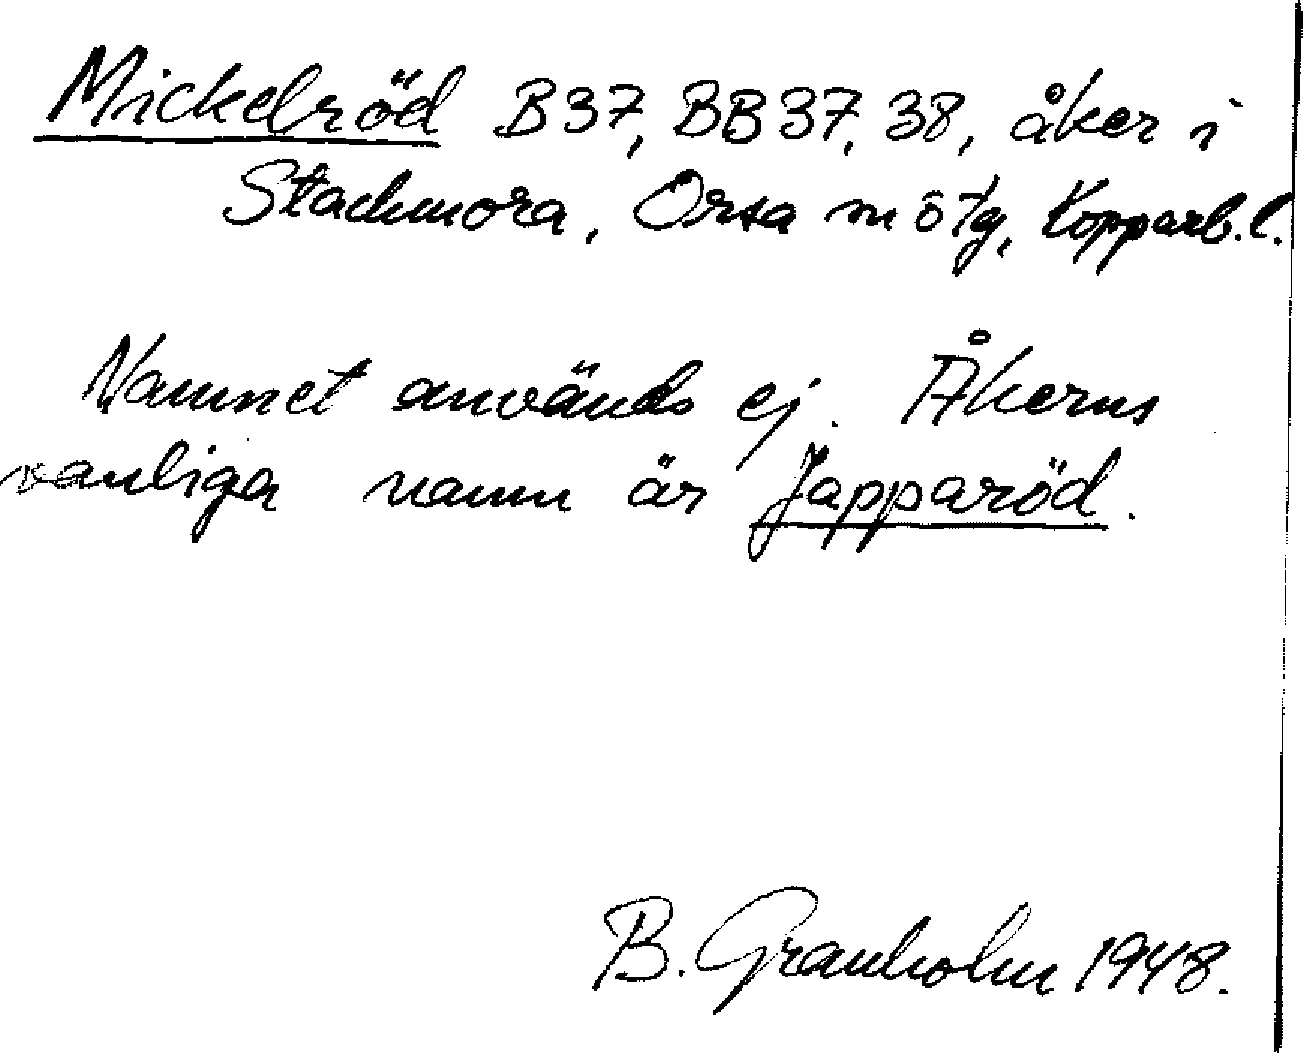 Mickelröd B37, BB37, 38, åker i
Stackmora, Orsa sn o tg, Kopparb. l.
Namnet används ej. Åkerns
vanliga namn är Japparöd.
B. Granholm 1948.